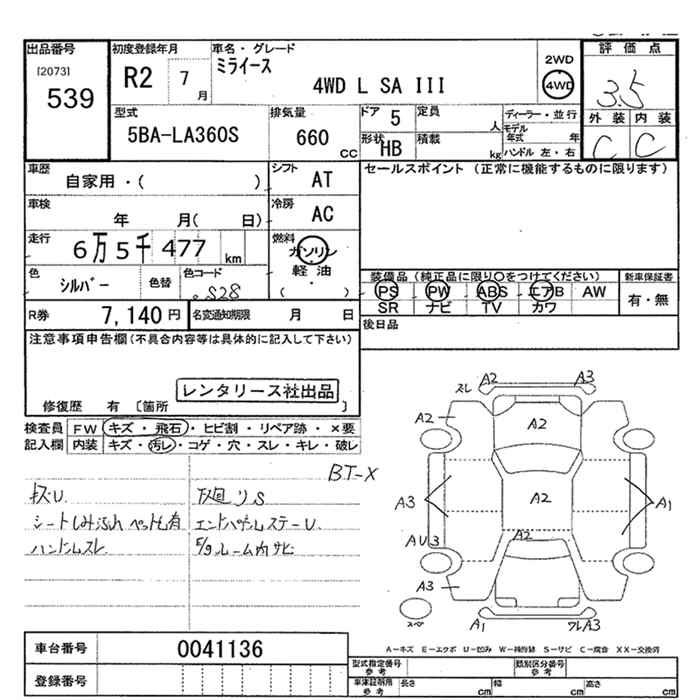 出品番号
[2073]
539
初度登録年月
R2 7月
車名・グレード
ミライース
4WD L SA III
2WD
4WD
評価点
3.5
外装 内装
C C
型式
5BA-LA360S
排気量
660 CC
ドア 5
定員 人
形状 HB
積載 kg
ディーラー・並行
モデル年式 年
ハンドル 左・右
車歴
自家用・( )
シフト AT
セールスポイント (正常に機能するものに限ります)
車検
年 月( 日)
冷房 AC
走行
6万5千477 km
燃料
ガソリン
軽油
( )
色
シルバー
色替
色コード
S28
装備品 (純正品に限り○をつけてください)
PS PW ABS エアB AW
SR ナビ TV カワ
新車保証書
有・無
R券 7,140円
名変通知期限 月 日
後日品
注意事項申告欄(不具合内容等は具体的に記入して下さい)
レンタリース社出品
修復歴 有 〔箇所 〕
検査員 記入欄
FW キズ・飛石・ヒビ割・リペア跡・×要
内装 キズ・汚レ・コゲ・穴・スレ・キレ・破レ
BT-X
キズU
シートしみ汚れ ペット毛有
ハンドルスレ
下廻りS
スレ A2 A3
A2 A2
A3 A2 A1
AU3 A2
A3
スペ A1 ワレA3
A－キズ E－エクボ U－凹み W－補修跡 S－サビ C－腐食 XX－交換済
車台番号 0041136
登録番号
型式指定番号 参考
類別区分番号 参考
車体証明用 参考 長さ cm 幅 cm 高さ cm